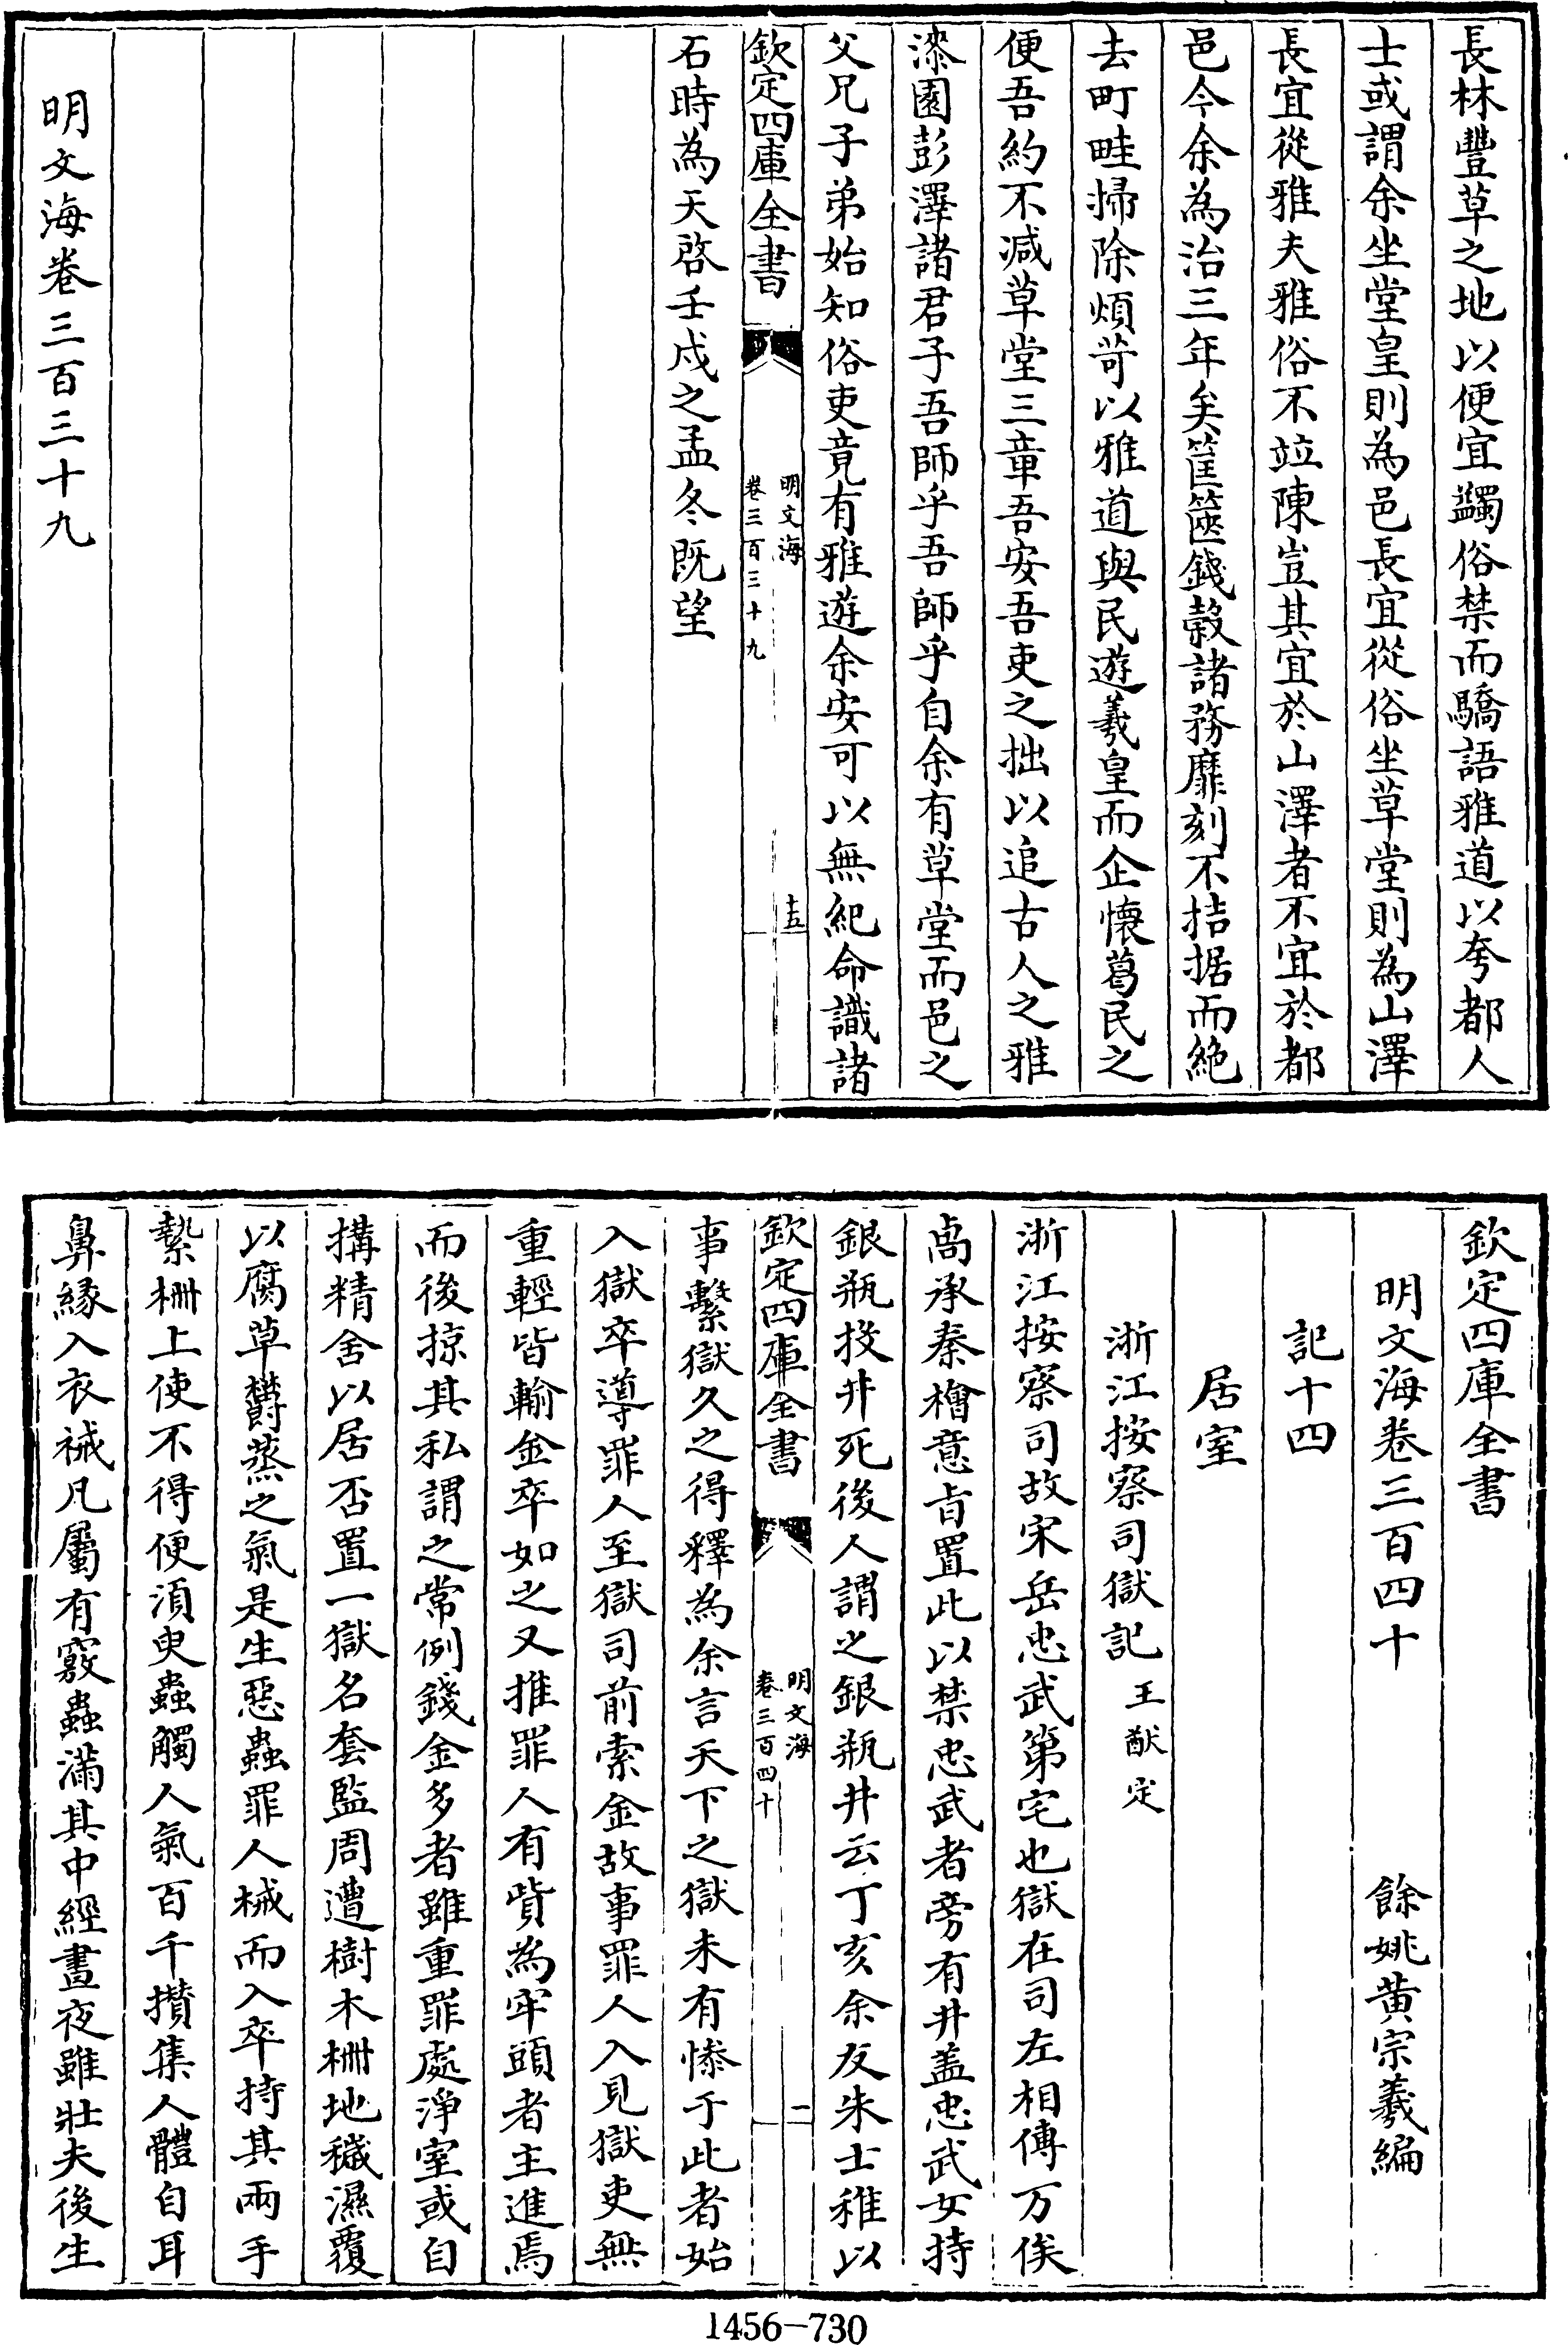 長林豐草之地以便宜蠲俗禁而驕語雅道以夸都人
士或謂余坐堂皇則為邑長宜從俗坐草堂則為山澤
長宜從雅夫雅俗不竝陳豈其宜於山澤者不宜於都
邑今余為治三年矣筐篋錢穀諸務靡刻不拮据而絶
去町畦掃除煩苛以雅道與民遊羲皇而企懷葛民之
便吾約不减草堂三章吾安吾吏之拙以追古人之雅
漆園彭澤諸君子吾師乎吾師乎自余有草堂而邑之
父兄子弟始知俗吏竟有雅遊余安可以無紀命識諸
欽定四庫全書
明文海
卷三百三十九
十五
石時為天啓壬戌之孟冬既望
明文海卷三百三十九
欽定四庫全書
明文海卷三百四十
餘姚黄宗羲編
記十四
居室
浙江按察司獄記
王猷定
浙江按察司故宋岳忠武第宅也獄在司左相傳万俟
卨承秦檜意旨置此以禁忠武者旁有井盖忠武女持
銀瓶投井死後人謂之銀瓶井云丁亥余友朱士稚以
欽定四庫全書
明文海
卷三百四十
一
事繫獄久之得釋為余言天下之獄未有慘于此者始
入獄卒導罪人至獄司前索金故事罪人入見獄吏無
重輕皆輸金卒如之又推罪人有貲為牢頭者主進焉
而後掠其私謂之常例錢金多者雖重罪處淨室或自
搆精舍以居否置一獄名套監周遭樹木柵地穢濕覆
以腐草欝蒸之氣是生惡蟲罪人械而入卒持其兩手
縶柵上使不得便湏臾蟲觸人氣百千攅集人體自耳
鼻緣入衣祴凡屬有竅蟲滿其中經晝夜雖壯夫後生
1456-730